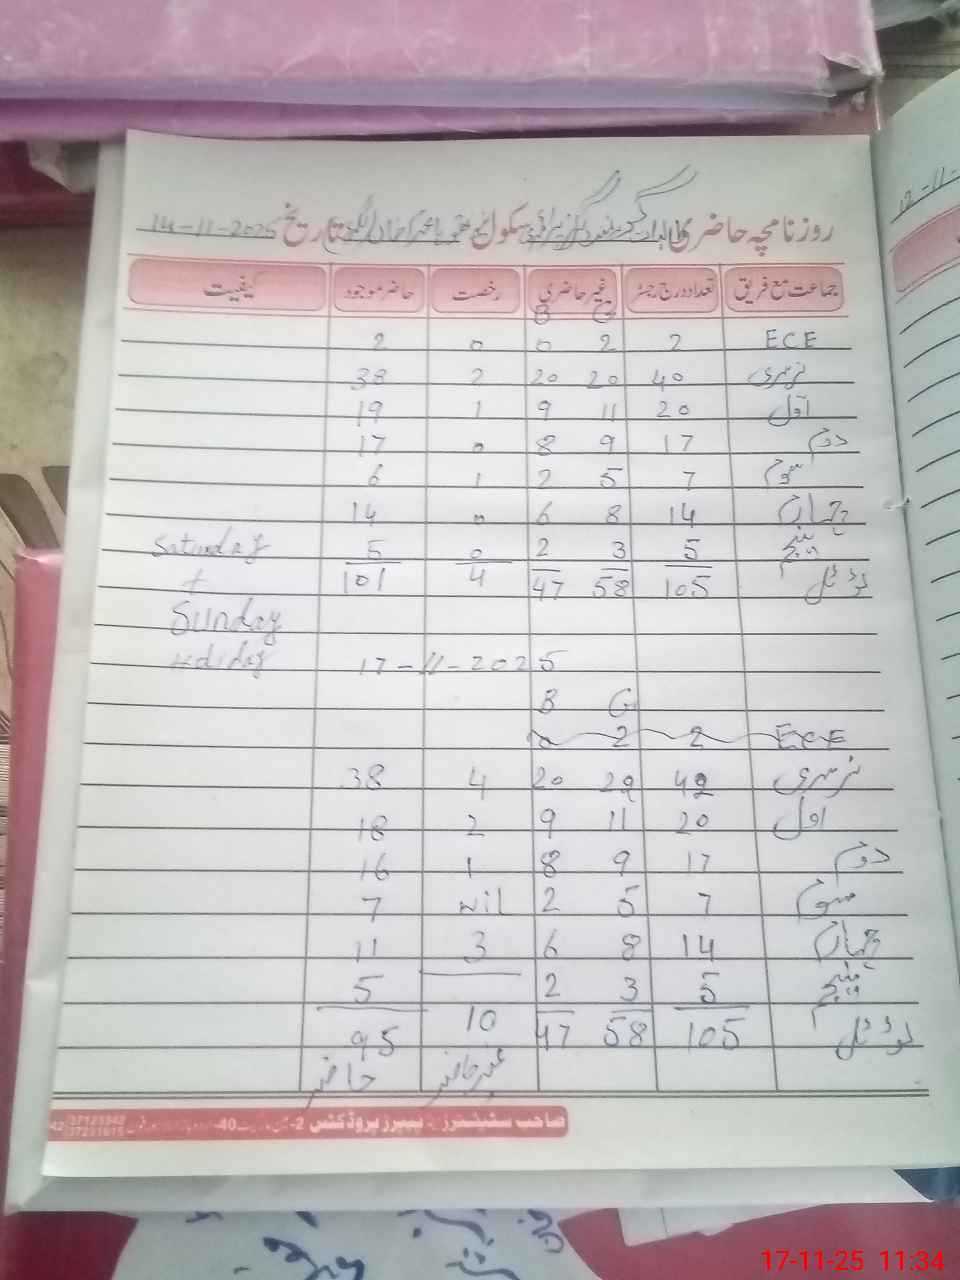 روزنامچہ حاضری سکول تاریخ 14-11-2025
جماعت مع فریق تعداد درج رجسٹر غیر حاضری رخصت حاضر موجود کیفیت
B G
ECE 2 2 0 0 2
نرسری 40 20 20 2 38
اول 20 11 9 1 19
دوم 17 9 8 0 17
سوم 7 5 2 1 6
چہارم 14 8 6 0 14
پنجم 5 3 2 0 5 Saturday
ٹوٹل 105 58 47 4 101 +
Sunday
Holiday
17-11-2025
B G
ECE 2 2 0
نرسری 42 22 20 4 38
اول 20 11 9 2 18
دوم 17 9 8 1 16
سوم 7 5 2 Nil 7
چہارم 14 8 6 3 11
پنجم 5 3 2 5
ٹوٹل 105 58 47 10 95
غیر حاضر حاضر
صاحب سٹیشنرز اینڈ پیپرز پروڈکٹس 2- 40-
37123342
37231615
12-11-
17-11-25 11:34